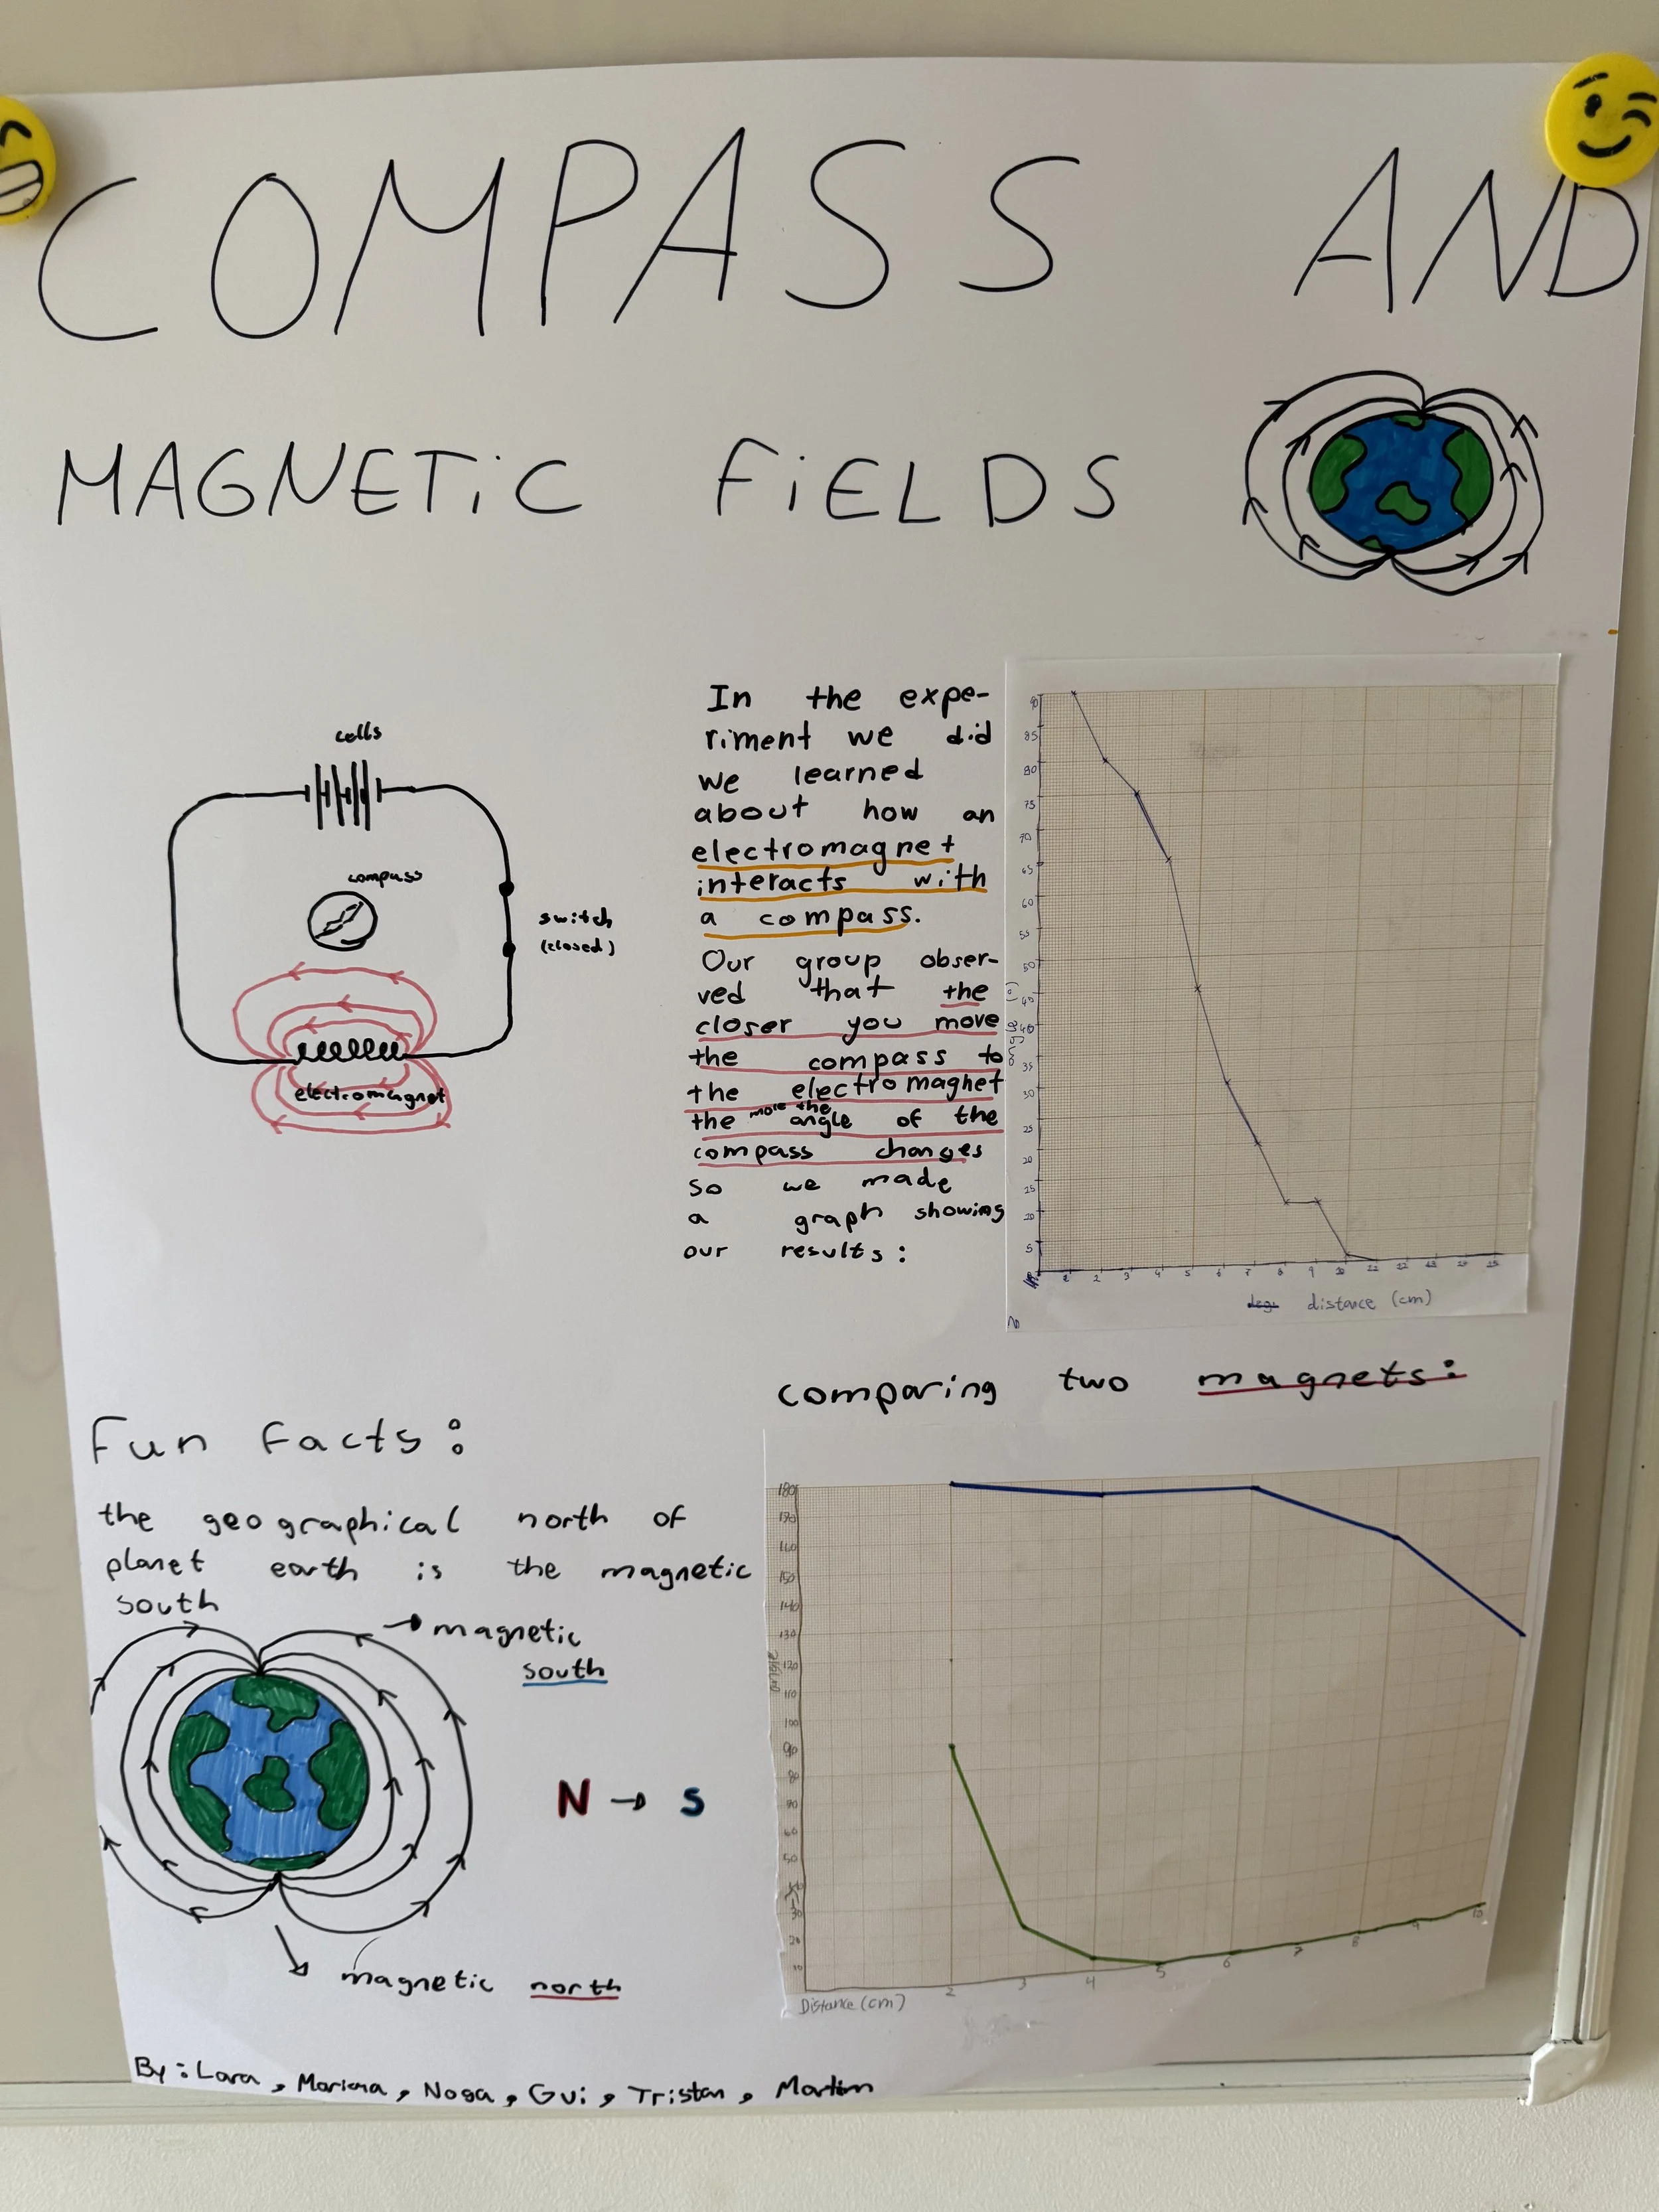 COMPASS AND
MAGNETIC FIELDS
cells
compass
switch
(closed)
electromagnet
In the expe-
riment we did
we learned
about how an
electromagnet
interacts with
a compass.
Our group obser-
ved that the
closer you move
the compass to
the electromagnet
the more the angle of the
compass changes
so we made
a graph showing
our results:
90
85
80
75
70
65
60
55
50
45
40
35
30
25
20
5
2 3 4 5 6 7 8 9 10 11 12 13 14 15
distance (cm)
comparing two magnets:
Fun Facts:
the geographical north of
planet earth is the magnetic
south
magnetic
south
N → S
magnetic north
180
170
160
150
140
130
120
110
100
90
80
70
60
50
40
30
20
10
angle
2 3 4 5 6 7 8 9 10
Distance (cm)
By: Lara, Mariana, Noga, Gui, Tristan, Martim